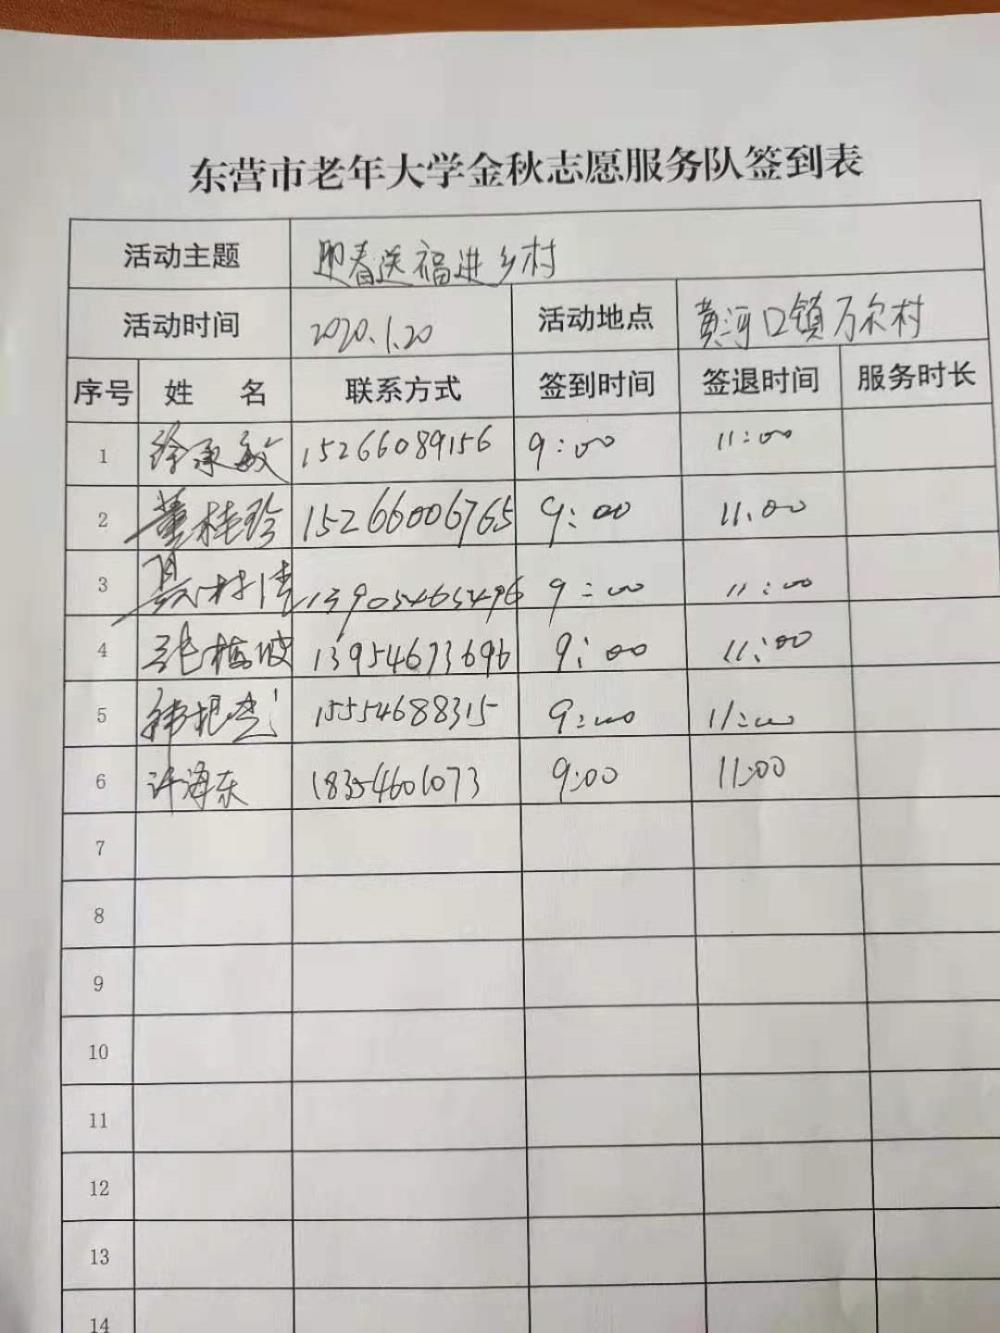 东营市老年大学金秋志愿服务队签到表
活动主题 迎春送福进乡村
活动时间 2020.1.20 活动地点 黄河口镇万尔村
序号 姓 名 联系方式 签到时间 签退时间 服务时长
1 徐承敏 15266089156 9:00 11:00
2 董桂珍 15266006765 9:00 11:00
3 13905465496 9:00 11:00
4 张梅波 13954673696 9:00 11:00
5 15554688315 9:00 11:00
6 许海东 18354601073 9:00 11:00
7
8
9
10
11
12
13
14